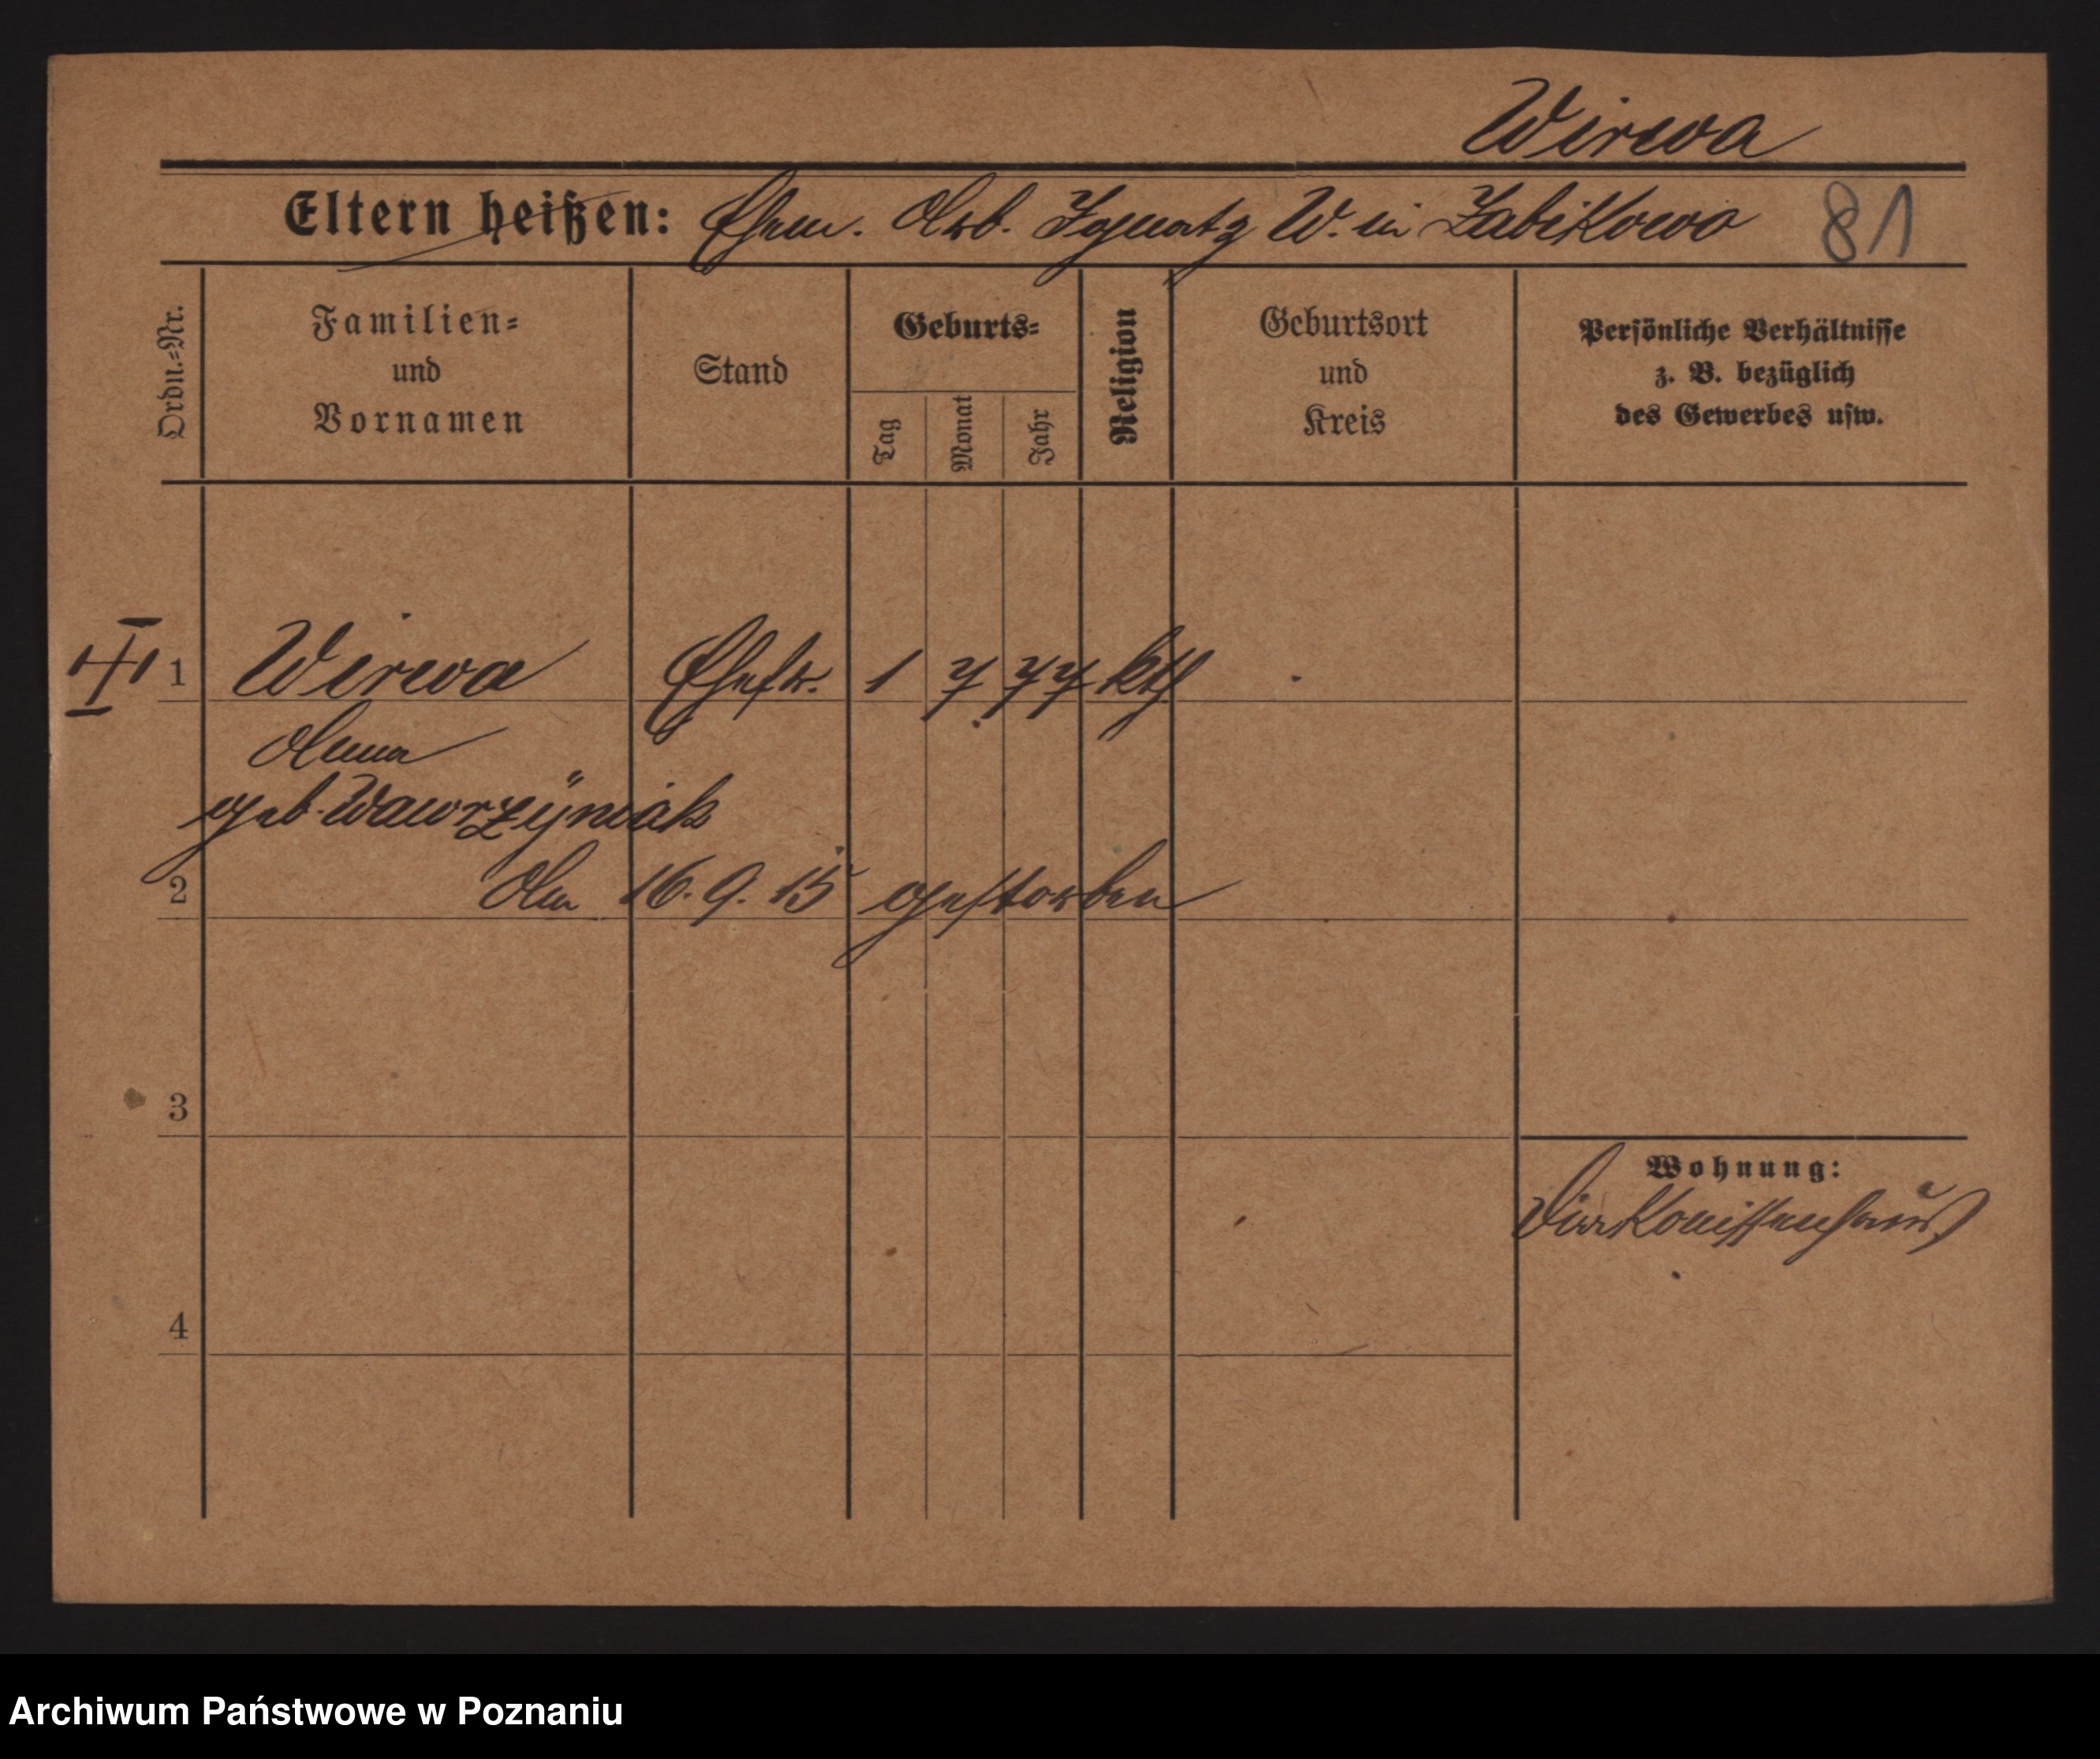 Wirwa
Eltern heißen: Ehem. Arb. Ignatz W. in Zabikowo 81
Ordn.=Nr.
Familien=
und
Vornamen
Stand
Geburts=
Tag
Monat
Jahr
Religion
Geburtsort
und
Kreis
Persönliche Verhältnisse
z. B. bezüglich
des Gewerbes usw.
1 Wirwa Ehefr. 1 7 77 kth
Anna
geb. Wawrzÿniak
2 Am 16.9.15 gestorben
3
Wohnung:
Diakonissenhaus
4
Archiwum Państwowe w Poznaniu